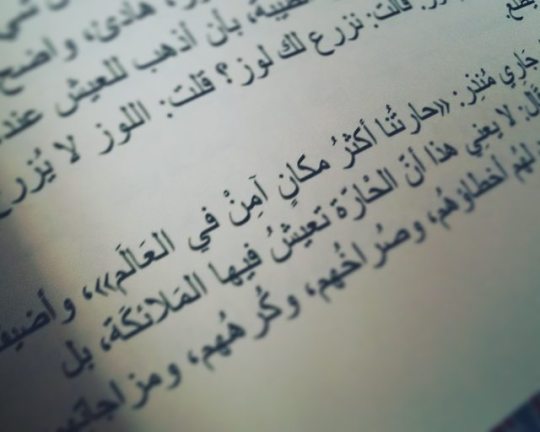 هادئ، واضح
طيبة، بأن أذهب للعيش عند
قالت: نزرع لك لوز؟ قلت: اللوز لا يُزرع
جَاري مُنذِر: «حارتُنا أكثرُ مكانٍ آمِنْ في العَالَم»، وأضيف
قَال: لا يعنِي هذا أنّ الحْارّة تَعيشُ فيها المَلائكَة، بل
لهُم أخطاؤهُم، وصُراخُهم، وكُرهُهم، ومزاجاتهم